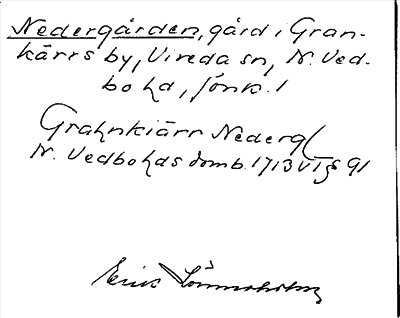 Nedergården, gård i Gran-
kärrs by, Vireda sn, N. Ved-
bo hd, Jönk. l
Grahnkiärr Nederg
N. Vedbo hds domb. 1713 VI § 91
Erik